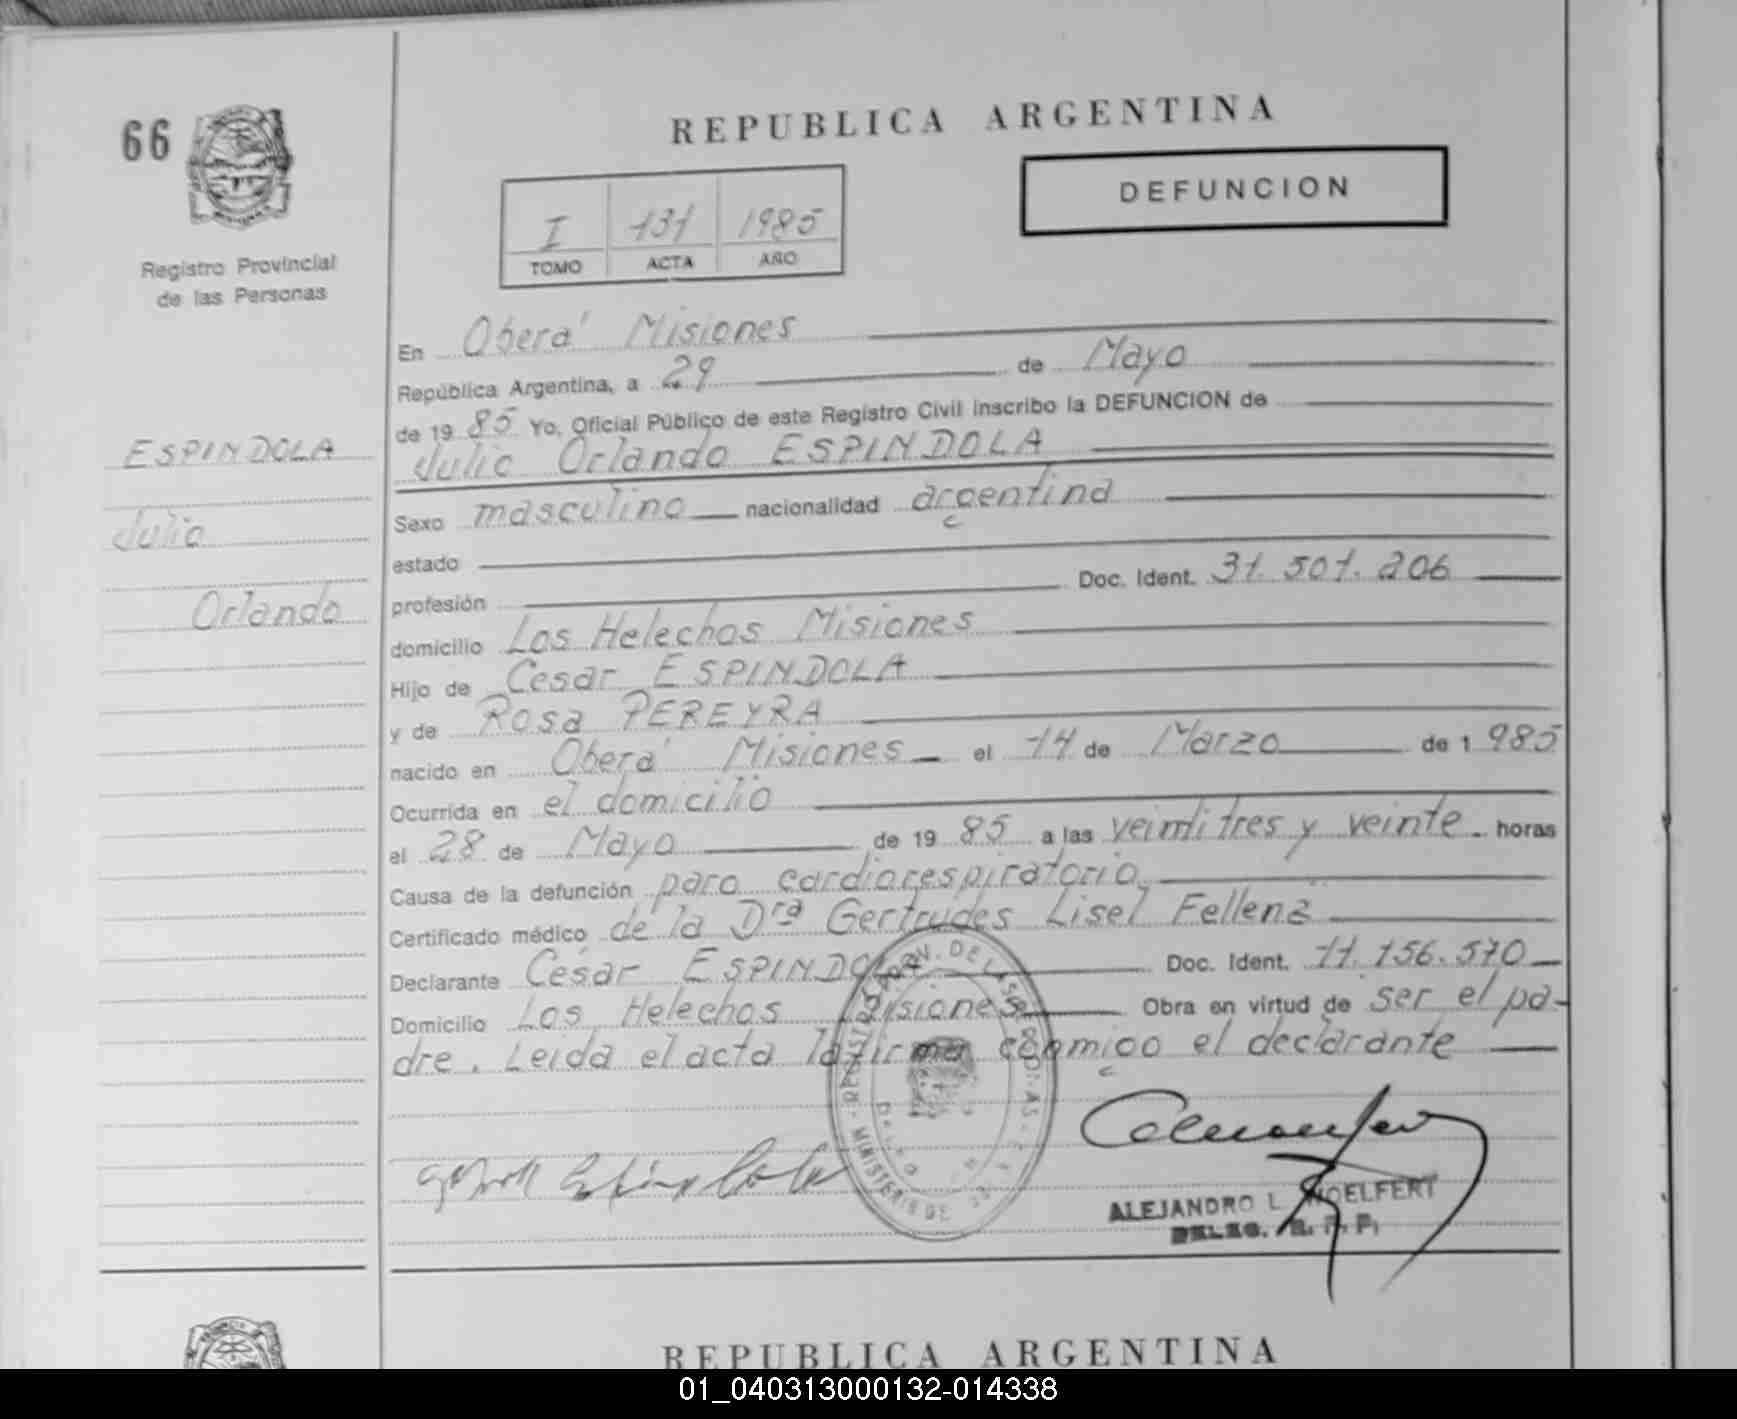 66
REPUBLICA ARGENTINA
DEFUNCION
I 131 1985
TOMO ACTA AÑO
Registro Provincial
de las Personas
En Oberá Misiones
República Argentina, a 29 de Mayo
de 19 85 Yo, Oficial Público de este Registro Civil inscribo la DEFUNCION de
Julio Orlando ESPINDOLA
ESPINDOLA
Julio
Orlando
Sexo masculino nacionalidad argentina
estado
profesión Doc. Ident. 31.501.206
domicilio Los Helechos Misiones
Hijo de Cesar ESPINDOLA
y de Rosa PEREYRA
nacido en Oberá Misiones el 14 de Marzo de 1 985
Ocurrida en el domicilio
el 28 de Mayo de 19 85 a las veintitres y veinte horas
Causa de la defunción paro cardiorespiratorio
Certificado médico de la Dra Gertrudes Lisel Fellenz
Declarante César ESPINDOLA Doc. Ident. 11.156.570
Domicilio Los Helechos Misiones Obra en virtud de ser el pa-
dre. Leida el acta la firma conmigo el declarante
ALEJANDRO L. WOELFERT
DELEG. R. P. P.
REPUBLICA ARGENTINA
01_040313000132-014338